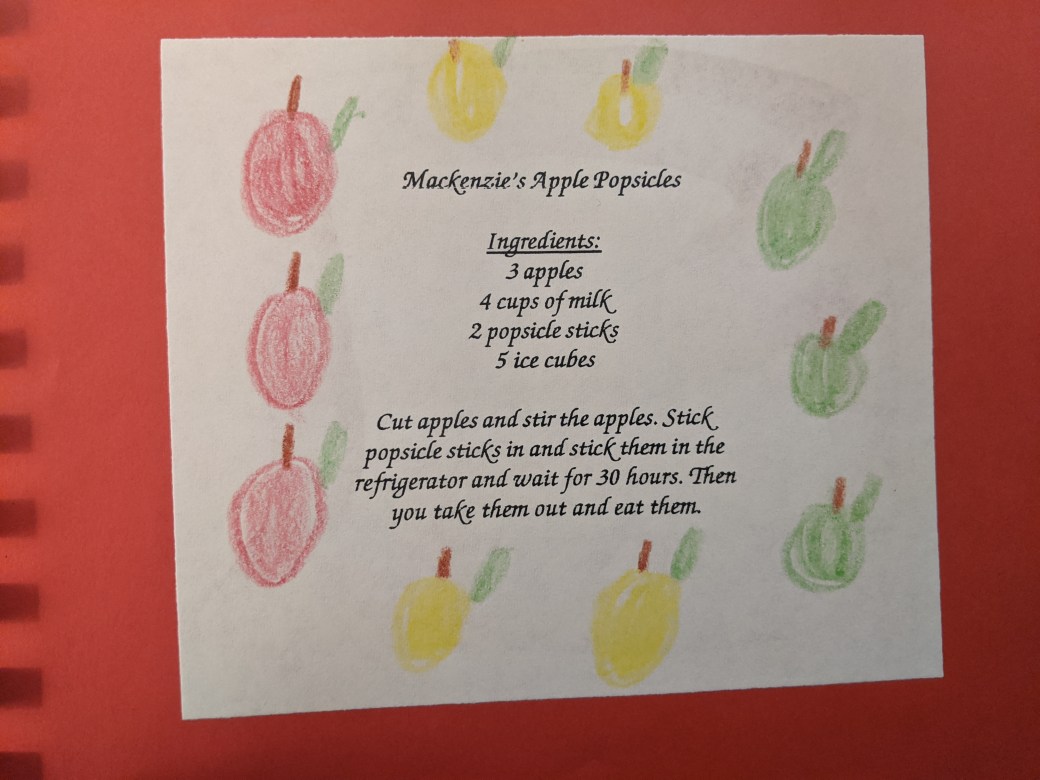 Mackenzie's Apple Popsicles
Ingredients:
3 apples
4 cups of milk
2 popsicle sticks
5 ice cubes
Cut apples and stir the apples. Stick
popsicle sticks in and stick them in the
refrigerator and wait for 30 hours. Then
you take them out and eat them.